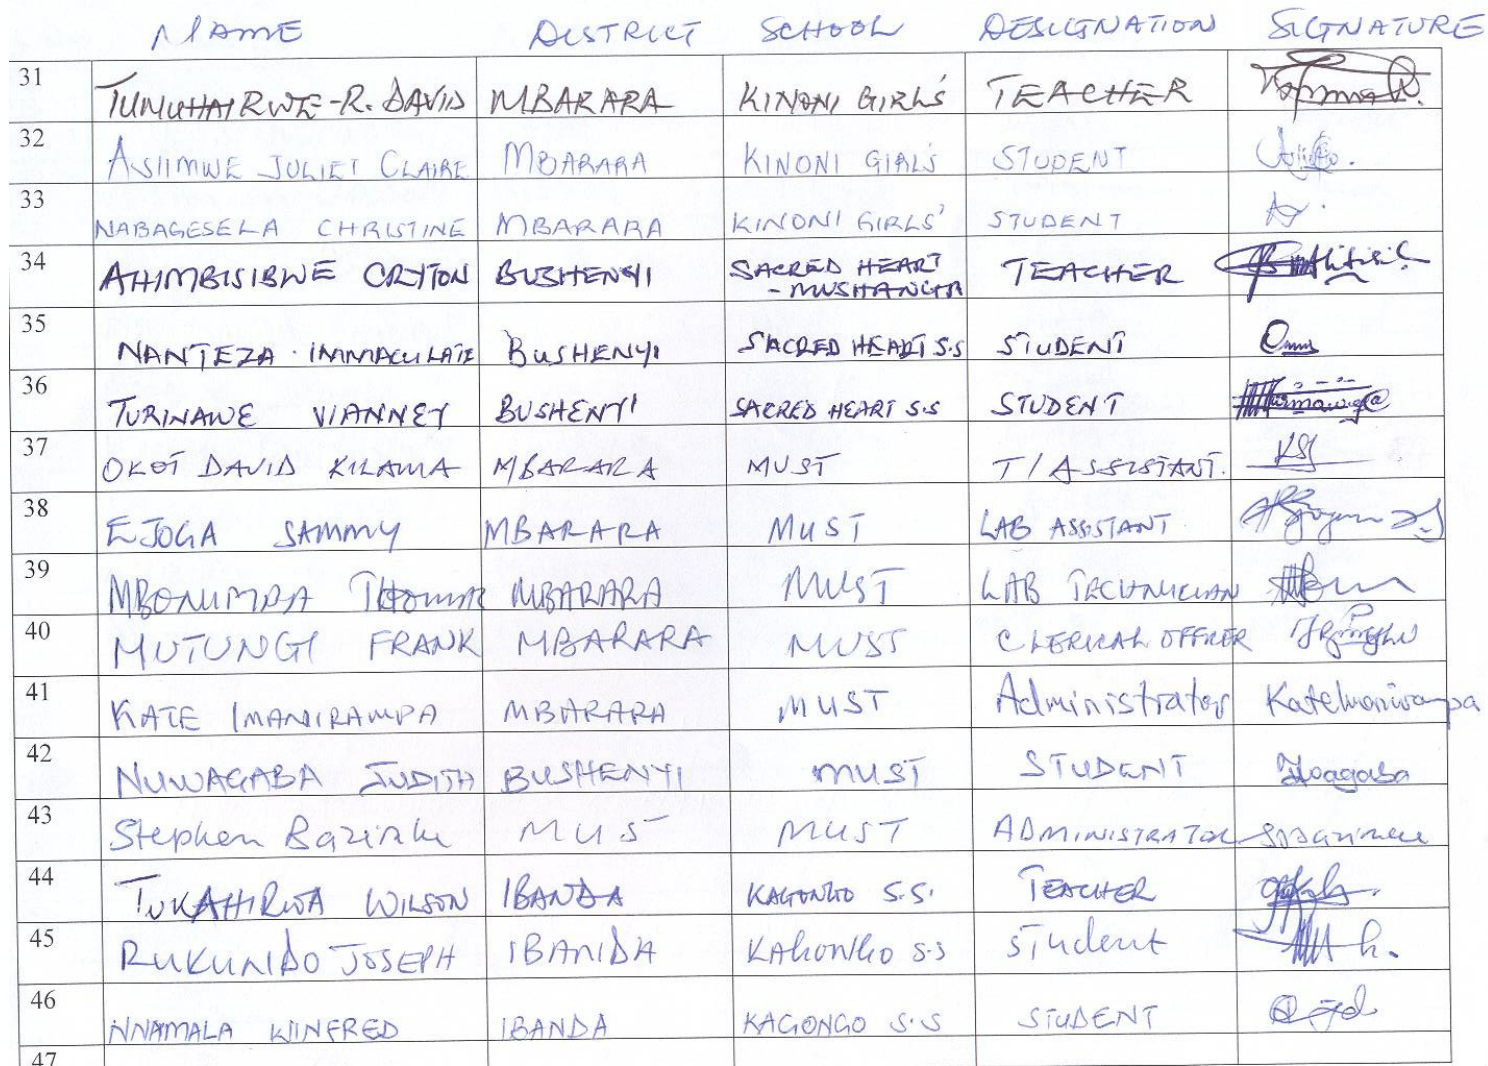 NAME DISTRICT SCHOOL DESIGNATION SIGNATURE
31 TUMUHAIRWE-R. DAVID MBARARA KINONI GIRL'S TEACHER
32 ASIIMWE JULIET CLAIRE MBARARA KINONI GIRL'S STUDENT
33 NABAGESELA CHRISTINE MBARARA KINONI GIRLS' STUDENT
34 AHIMBISIBWE CRYTON BUSHENYI SACRED HEART TEACHER
- MUSHANGA
35 NANTEZA IMMACULATE BUSHENYI SACRED HEART S.S STUDENT
36 TURINAWE VIANNEY BUSHENYI SACRED HEART S.S STUDENT
37 OKOT DAVID KILAMA MBARARA MUST T/ASSISTANT.
38 EJOGA SAMMY MBARARA MUST LAB ASSISTANT
39 MBONIMPA THOMAS MBARARA MUST LAB TECHNICIAN
40 MUTUNGI FRANK MBARARA MUST CLERICAL OFFICER
41 KATE IMANIRAMPA MBARARA MUST Administrator
42 NUWAGABA JUDITH BUSHENYI MUST STUDENT
43 Stephen MUST MUST ADMINISTRATOR
44 TUKAHIRWA WILSON IBANDA KAGONGO S.S. TEACHER
45 RUKUNDO JOSEPH IBANDA KAGONGO S.S student
46 NNAMALA WINFRED IBANDA KAGONGO S.S STUDENT
47